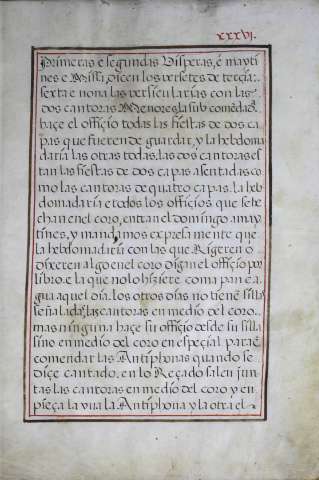 xxxvi.
primeras e segundas Visperas, é mayti
nes e Missa, dicen los versetes de tercia:
sexta e nona las versicularias con las
dos cantoras Menores, la sub comēdaō.
haçe el officio todas las fiestas de dos ca
pas que fueren de guardar, y la hebdoma
daria las otras todas, las dos cantoras es
tan las fiestas de dos capas asentadas co
mo las cantoras de quatro capas. la heb
domadaria e todos los officios que se he
chan en el coro, entran el domingo a may
tines, y mandamos expresamente que
la hebdomadaria con las que Rigeren o
dixeren algo en el coro digan el officio por
libro. e la que no lo hiziere coma pan e a
gua aquel dia. los otros dias no tienē silla
señalada, las cantoras en medio del coro.
mas ninguna haçe su officio desde su silla
sino en medio del coro en especial para ē
comendar las Antiphonas quando se
diçe cantado. en lo Reçado salen jun
tas las cantoras en medio del coro y en
pieça la vna la Antiphona y la otra el